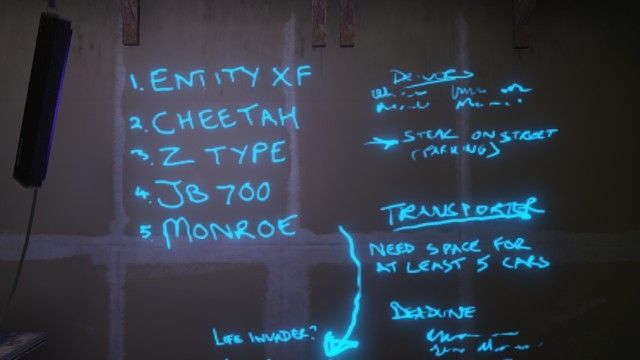 1. ENTITY XF
2. CHEETAH
3. Z TYPE
4. JB 700
5. MONROE
STEAL ON STREET
(PARKING)
TRANSPORTER
NEED SPACE FOR
AT LEAST 5 CARS
DEADLINE
LIFE INVADER?